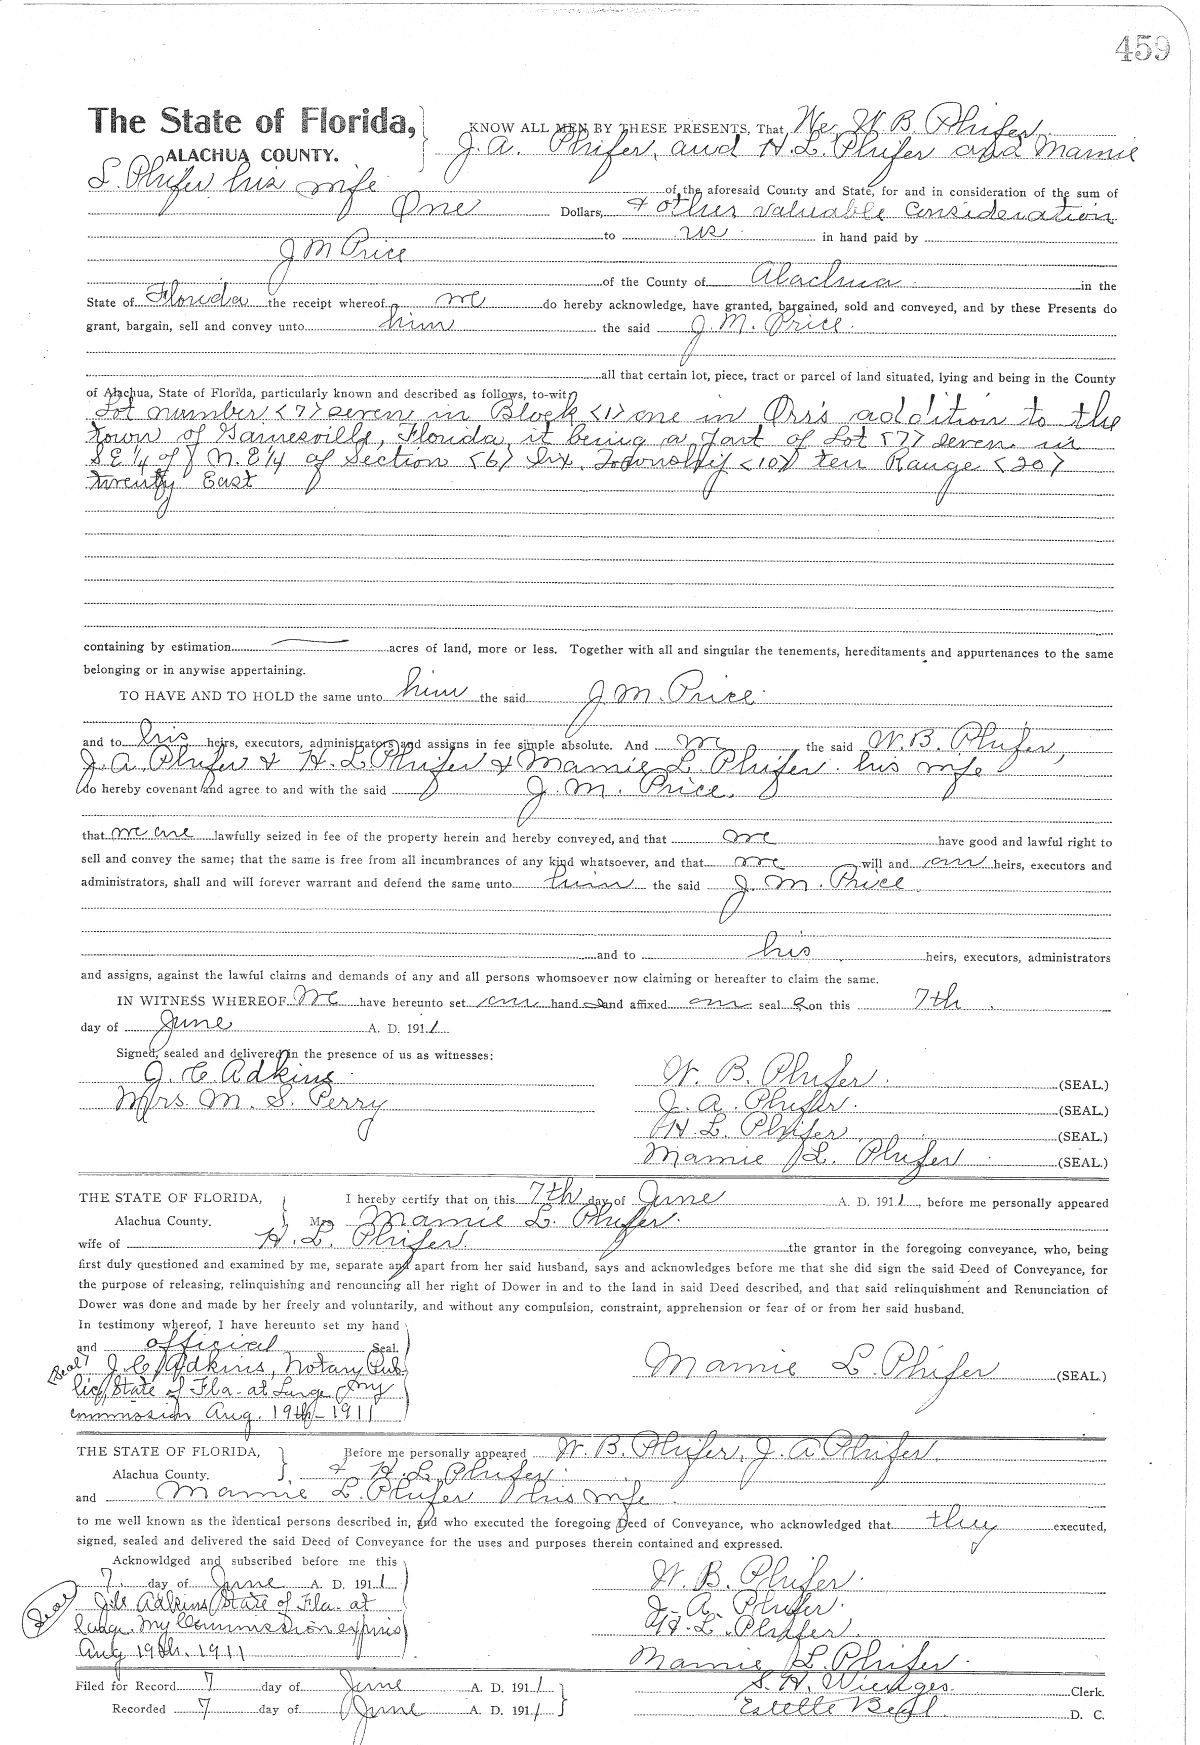 459
The State of Florida, KNOW ALL MEN BY THESE PRESENTS, That We, W. B. Phifer,
ALACHUA COUNTY. J. A. Phifer, and H. L. Phifer and Mamie
L. Phifer his wife of the aforesaid County and State, for and in consideration of the sum of
One Dollars, & other valuable consideration
to us in hand paid by
J M Price
of the County of Alachua in the
State of Florida the receipt whereof we do hereby acknowledge, have granted, bargained, sold and conveyed, and by these Presents do
grant, bargain, sell and convey unto him the said J. M. Price.
all that certain lot, piece, tract or parcel of land situated, lying and being in the County
of Alachua, State of Florida, particularly known and described as follows, to-wit:
Lot number <7> seven in Block <1> one in Orr's addition to the
town of Gainesville, Florida, it being a part of Lot <7> seven in
S E 1/4 of N. E 1/4 of Section <6> Six, Township <10> ten Range <20>
twenty East
containing by estimation acres of land, more or less. Together with all and singular the tenements, hereditaments and appurtenances to the same
belonging or in anywise appertaining.
TO HAVE AND TO HOLD the same unto him the said J. M. Price.
and to his heirs, executors, administrators and assigns in fee simple absolute. And we the said W. B. Phifer,
J. A. Phifer & H. L. Phifer & Mamie L. Phifer his wife
do hereby covenant and agree to and with the said J. M. Price.
that we are lawfully seized in fee of the property herein and hereby conveyed, and that we have good and lawful right to
sell and convey the same; that the same is free from all incumbrances of any kind whatsoever, and that we will and our heirs, executors and
administrators, shall and will forever warrant and defend the same unto him the said J. M. Price
and to his heirs, executors, administrators
and assigns, against the lawful claims and demands of any and all persons whomsoever now claiming or hereafter to claim the same.
IN WITNESS WHEREOF We have hereunto set our hand s and affixed our seal s on this 7th
day of June A. D. 1911.
Signed, sealed and delivered in the presence of us as witnesses:
J. C. Adkins. W. B. Phifer. (SEAL.)
Mrs. M. S. Perry J. A. Phifer. (SEAL.)
H. L. Phifer. (SEAL.)
Mamie L. Phifer (SEAL.)
THE STATE OF FLORIDA, I hereby certify that on this 7th day of June A. D. 1911, before me personally appeared
Alachua County. Mrs Mamie L. Phifer.
wife of H. L. Phifer. the grantor in the foregoing conveyance, who, being
first duly questioned and examined by me, separate and apart from her said husband, says and acknowledges before me that she did sign the said Deed of Conveyance, for
the purpose of releasing, relinquishing and renouncing all her right of Dower in and to the land in said Deed described, and that said relinquishment and Renunciation of
Dower was done and made by her freely and voluntarily, and without any compulsion, constraint, apprehension or fear of or from her said husband.
In testimony whereof, I have hereunto set my hand
and official Seal.
Seal J. C. Adkins, Notary Pub- Mamie L. Phifer (SEAL.)
lic, State of Fla. at Large, My
commission Aug. 19th-1911
THE STATE OF FLORIDA, Before me personally appeared W. B. Phifer, J. A Phifer
Alachua County. & H. L. Phifer.
and Mamie L. Phifer his wife
to me well known as the identical persons described in, and who executed the foregoing Deed of Conveyance, who acknowledged that they executed,
signed, sealed and delivered the said Deed of Conveyance for the uses and purposes therein contained and expressed.
Acknowldged and subscribed before me this
7. day of June A. D. 1911. W. B. Phifer.
Seal J. C. Adkins, State of Fla. at J. A. Phifer.
Large. My Commission expires H. L. Phifer
Aug 19th. 1911 Mamie L. Phifer.
Filed for Record 7 day of June A. D. 1911 S. H. Wienges. Clerk.
Recorded 7 day of June A. D. 1911 Estelle D. C.